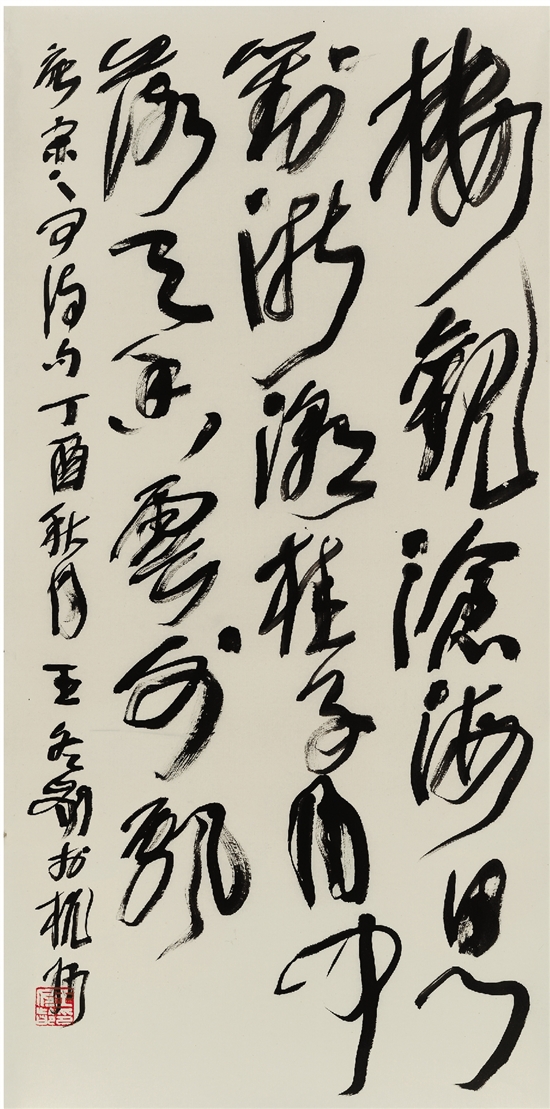 樓觀滄海日門
對浙潮桂子月中
落天香雲外飄
唐宋之问诗句丁酉秋月王冬龄於杭州